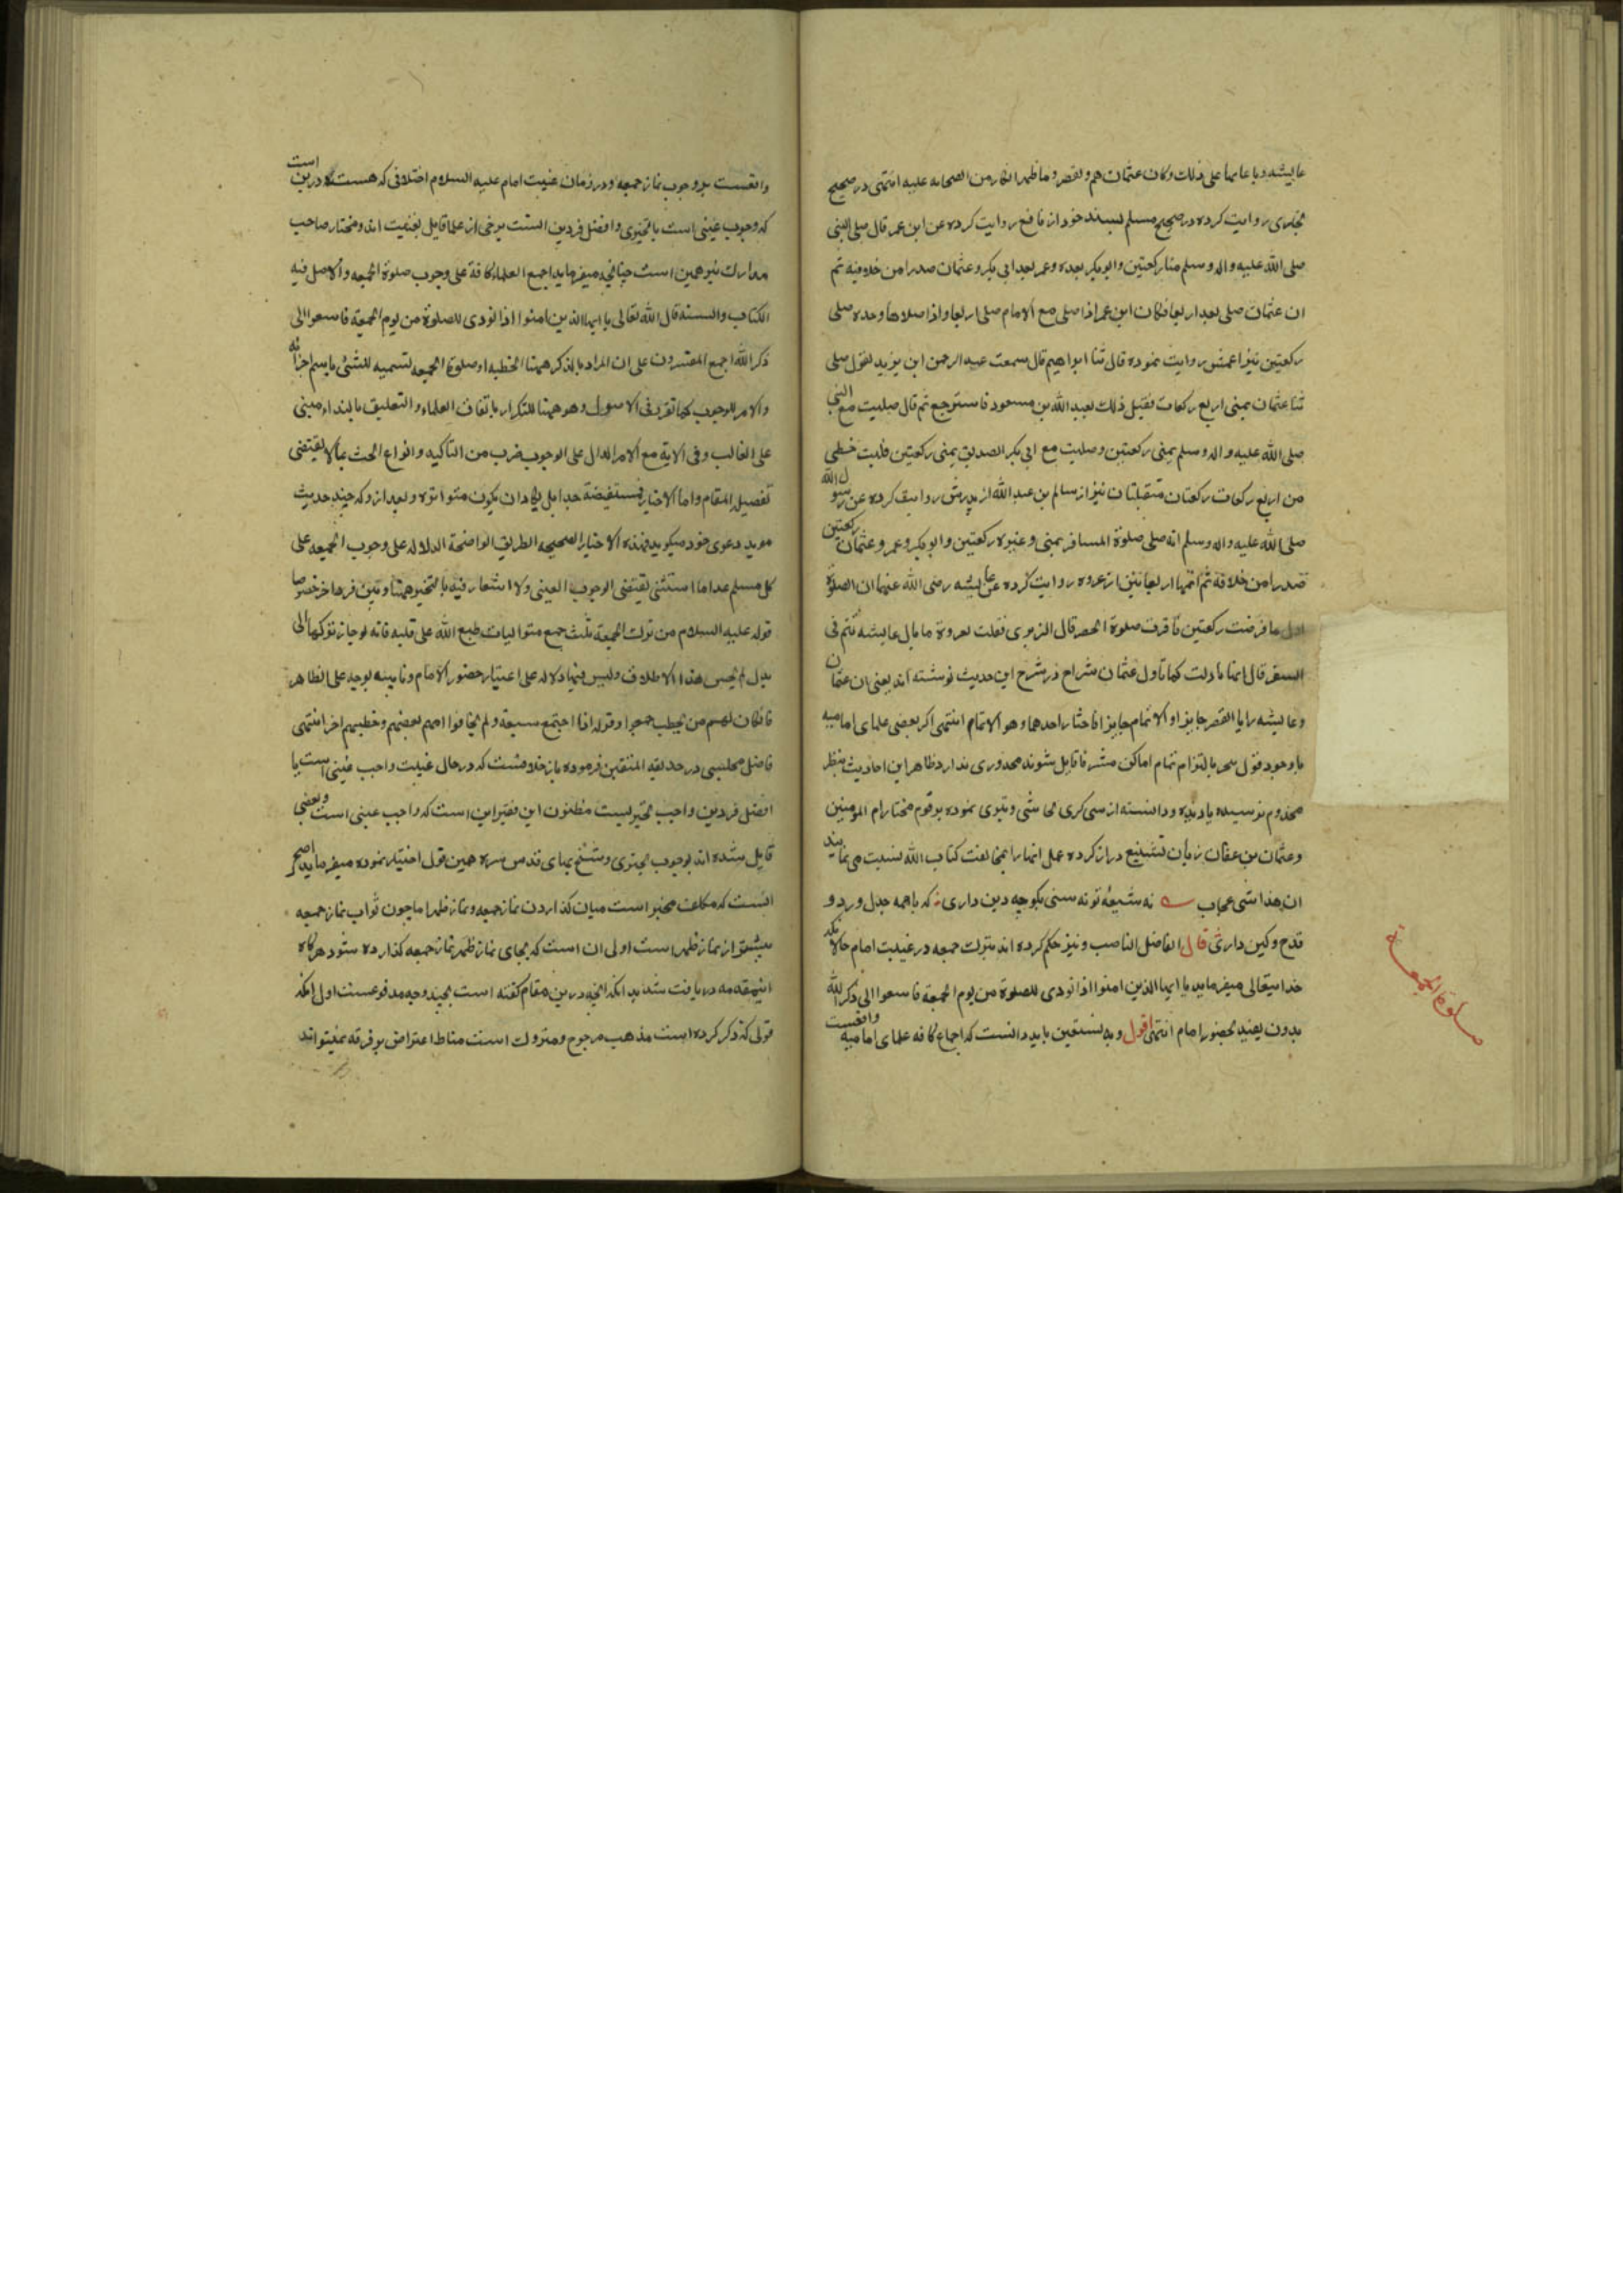 عایشه و تابعاها علی ذلک وکان عثمان هم ولقصر وما ظهر انکار من الصحابه علیه انتهی در صحیح
بخاری روایت کرده در صحیح مسلم بسند خود از نافع روایت کرده عن ابن عمر قال صلی النبی
صلی الله علیه واله وسلم منا رکعتین وابوبکر بعده وعمر بعد ابی بکر وعثمان صدرا من خلافته ثم
ان عثمان صلی بعد اربعا فکان ابن عمر اذا صلی مع الامام صلی اربعا واذا صلاها وحده صلی
رکعتین نیز اعمش روایت نموده قال ثنا ابراهیم قال سمعت عبد الرحمن ابن یزید یقول صلی
ثنا عثمان بمنی اربع رکعات فقیل ذلک لعبد الله بن مسعود فاسترجع ثم قال صلیت مع النبی
صلی الله علیه واله وسلم بمنی رکعتین وصلیت مع ابی بکر الصدیق بمنی رکعتین فلیت خطی
من اربع رکعات رکعتان متقبلتان نیز از سالم بن عبد الله از پدرش روایت کرده عن رسول الله
صلی الله علیه واله وسلم انه صلی صلوة المسافر بمنی وغیره رکعتین وابوبکر وعمر وعثمان رکعتین
صدرا من خلافة ثم اتمها اربعا نیز از عروه روایت کرده عن عایشه رضی الله عنها ان الصلوة
اول ما فرضت رکعتین فاقرت صلوة الحضر قال الزهری فقلت لعروة ما بال عایشه تتم فی
السفر قال انها تاولت کما تاول عثمان شراح در شرح این حدیث نوشته اند یعنی ان عثمان
وعایشه رایا القصر جایزا والاتمام جایزا فاختارا احدهما وهو الاتمام انتهی اگر بعضی علمای امامیه
با وجود قول بالتزام تمام اماکن مشرفه قایل شوند محذوری ندارد ظاهر این احادیث بنظر
مخدوم نرسیده یا دیده ودانسته تحاشی وتبری نموده برقوم مختار ام المومنین
وعثمان بن عفان زبان تشنیع دراز کرده عمل انها را بمخالفت کتاب الله نسبت می نمایند
ان هذا لشی عجاب نه شیعهٔ تو نه سنی بگو چه دین داری که باهمه جدل ورد و
قدح وکین داری قال الفاضل الناصب ونیز حکم کرده اند بترک جمعه در غیبت امام حالانکه
خدایتعالی میفرماید یا ایها الذین امنوا اذا نودی للصلوة من یوم الجمعة فاسعوا الی ذکر الله
بدون تقیید بحضور امام انتهی اقول وبه نستعین باید دانست که اجماع کافه علمای امامیه واقعست
صلوة الجمعة
واقعست بر وجوب نماز جمعه ودر زمان غیبت امام علیه السلام اختلافی که هست در این است
که وجوب عینی است یا تخییری وافضل فردین است برخی از علما قایل بعینیت اند ومختار صاحب
مدارک نیز همین است چنانچه میفرماید اجمع العلماء کافة علی وجوب صلوة الجمعه والاصل فیه
الکتاب والسنة قال الله تعالی یا ایها الذین امنوا اذا نودی للصلوة من یوم الجمعة فاسعوا الی
ذکر الله اجمع المفسرون علی ان المراد بالذکر ههنا الخطبه او صلوة الجمعه تسمیه للشئی باسم اجزائه
والامر للوجوب کما تقرر فی الاصول وهو ههنا للتکرار باتفاق العلماء والتعلیق بالنداء مبنی
علی الغالب وفی الایة مع الامر الدال علی الوجوب ضرب من التاکید وانواع الحث بما لا یقتضی
تفصیل المقام واما الاخبار فمستفیضة جدا بل یکاد ان یکون متواترة وبعد ازوکه چند حدیث
موید دعوی خود میگوید فهذه الاخبار الصحیحه الطریق الواضحة الدلاله علی وجوب الجمعه علی
کل مسلم عدا ما استثنی تقتضی الوجوب العینی ولا اشعار فیه بالتخییر ههنا وبین فرد اخر خصوصا
قوله علیه السلام من ترک الجمعة ثلث جمع متوالیات طبع الله علی قلبه فانه لو جاز ترکها الی
بدل لم یحسن هذا الاطلاق ولیس فیها دلاله علی اعتبار حضور الامام ونایبه بوجه علی الظاهر
فان کان لهم من یخطب جمعوا وقوله اذا اجتمع سبعة ولم یخافوا امهم بعضهم وخطبهم اخر انتهی
فاضل مجلسی در حدیقة المتقین فرموده باز خلافست که در حال غیبت واجب عینی است یا
افضل فردین واجب تخییریست مظنون این فقیر این است که واجب عینی است وبعضی
قایل شده اند بوجوب تخییری وشیخ بهای قدس سره همین قول اختیار نموده میفرماید اصح
انست که مکلف مخیر است میان گذاردن نماز جمعه ونماز ظهر اما چون ثواب نماز جمعه
بیشتر از نماز ظهر است اولی ان است که بجای نماز ظهر نماز جمعه گذارده شود هرگاه
اینمقدمه دریافت شد بدانکه انچه درین مقام گفته است بچند وجه مدفوعست اول انکه
قولی که ذکر کرده است مذهب مرجوح ومتروک است مناط اعتراض بر فرقه نمیتواند